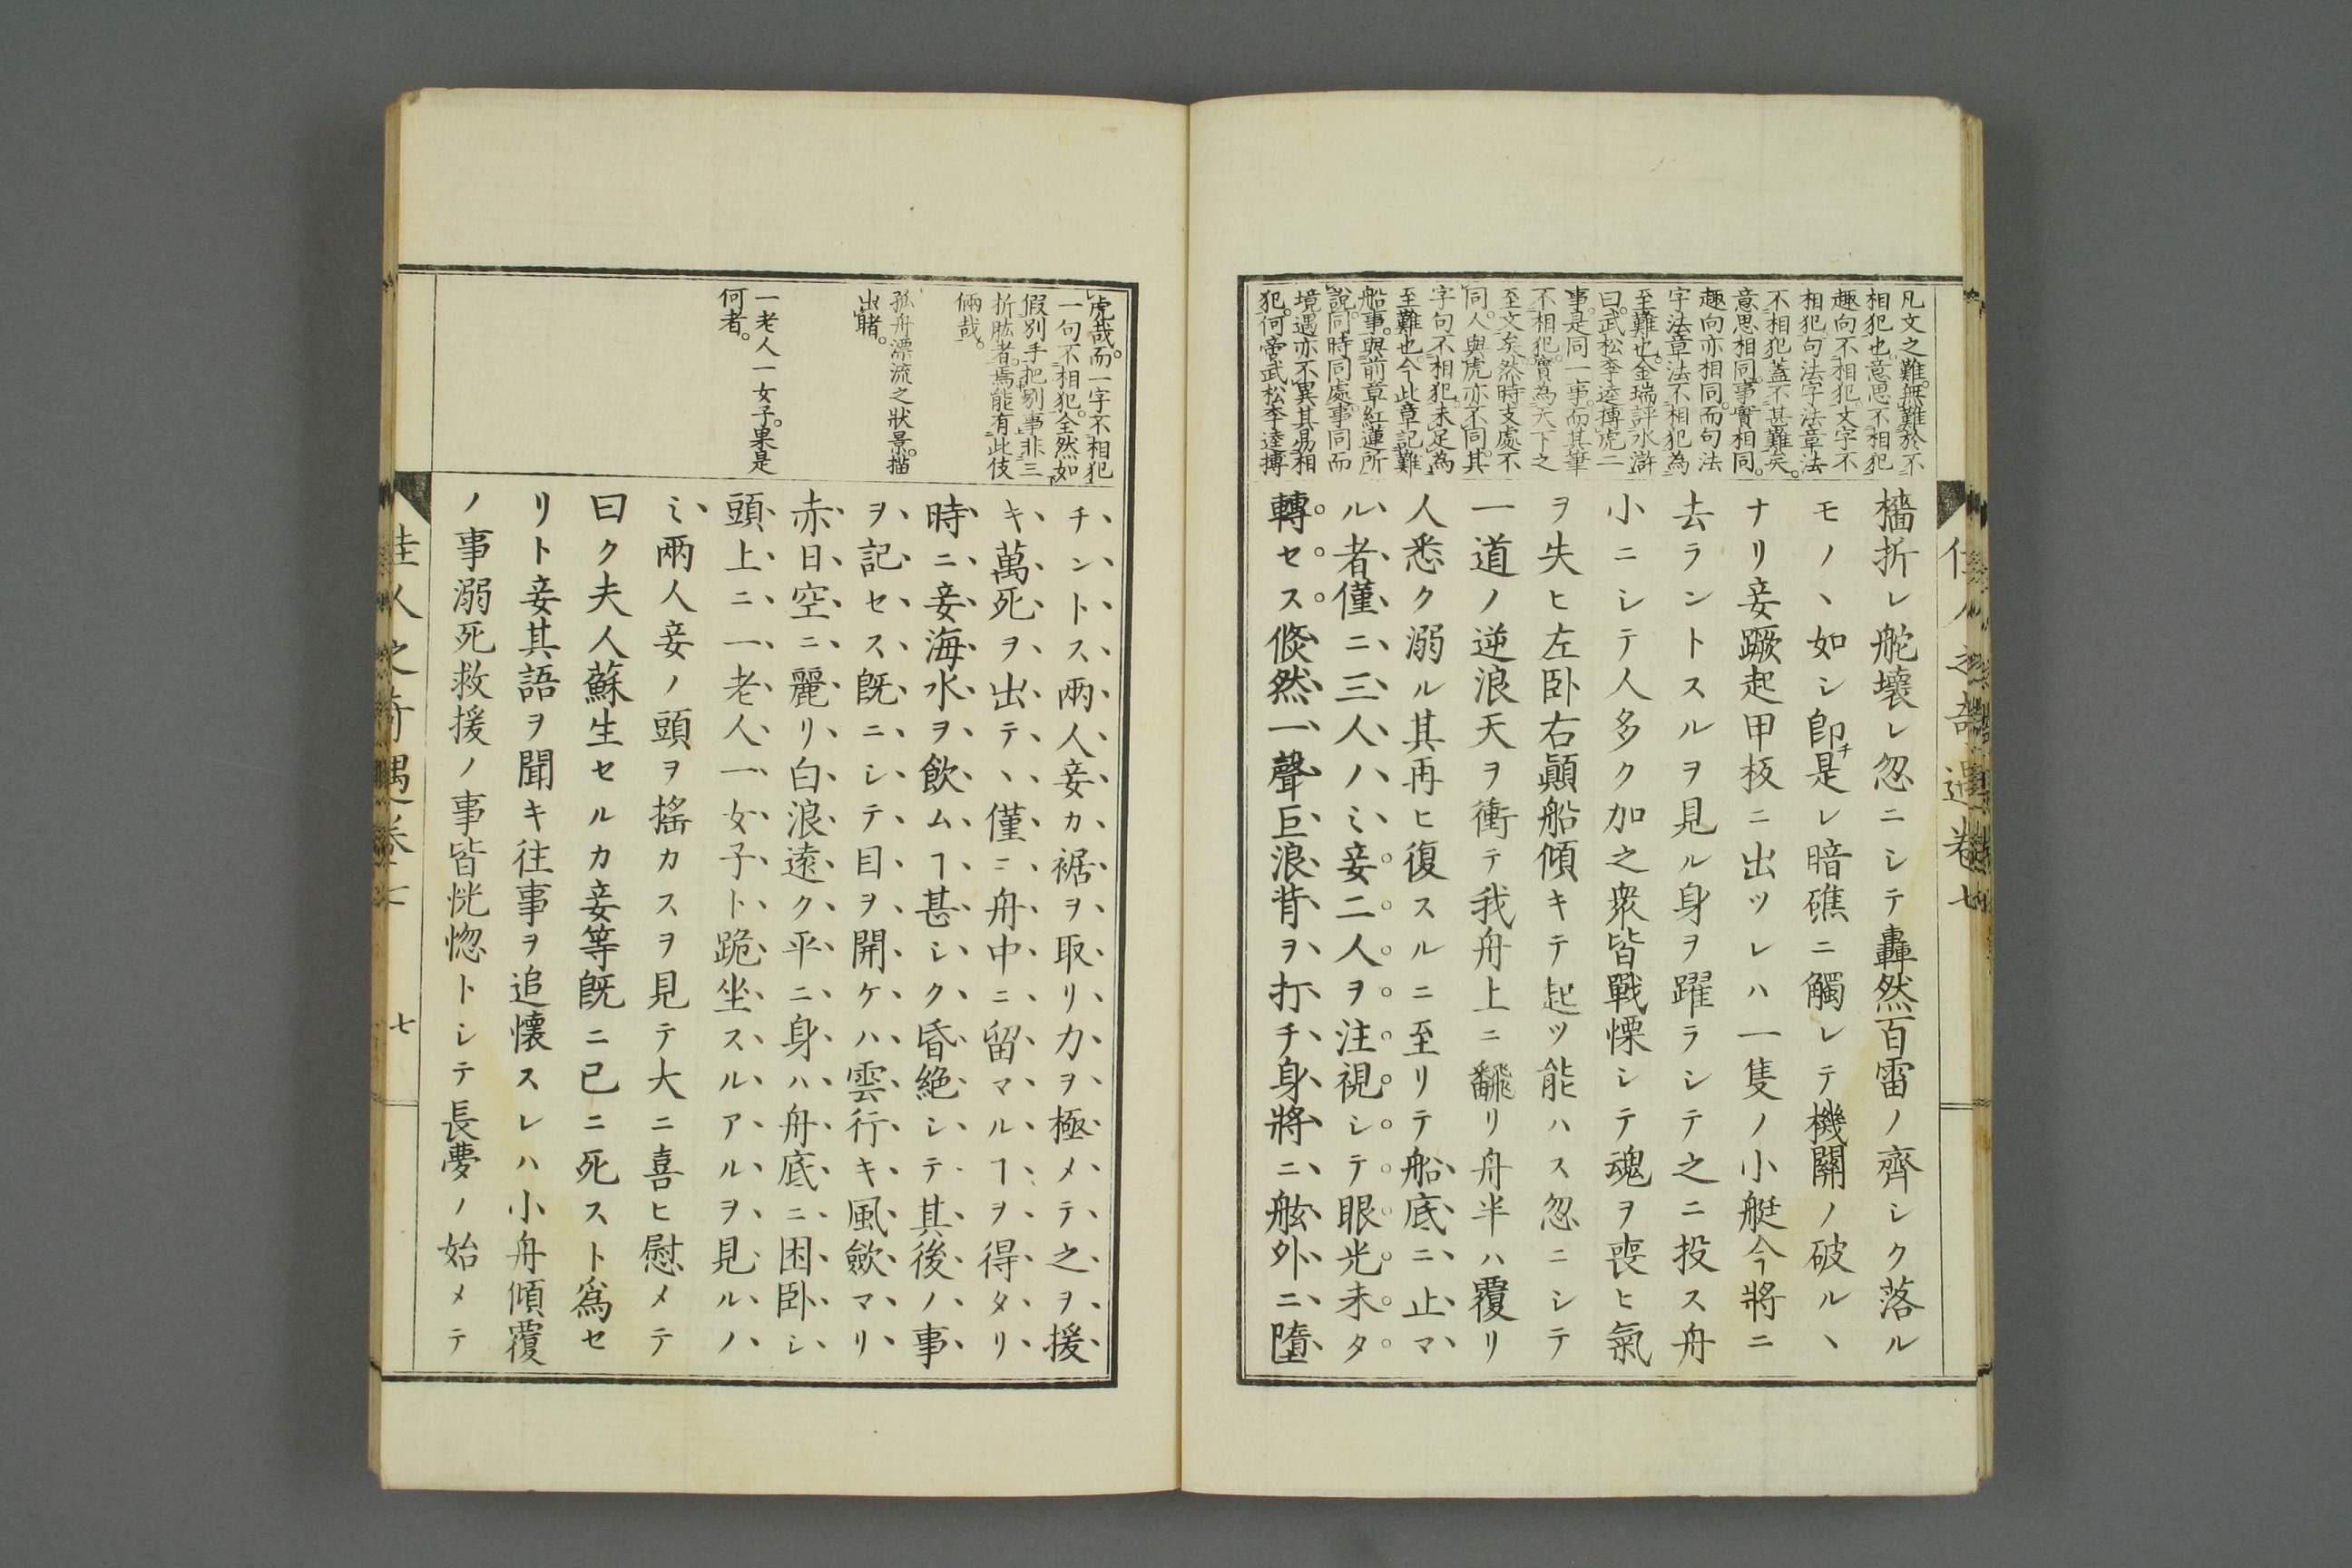 凡文之難。無難於不
相犯也。意思不相犯
趣向不相犯。文字不
相犯。句法字法章法
不相犯。蓋不甚難矣。
意思相同。事實相同。
趣向亦相同。而句法
字法章法不相犯。為
至難也。金瑞評水滸
曰。武松李逵搏虎二
事。是同一事。而其筆
不相犯。實為天下之
至文矣。然時支處不
同。人與虎亦不同。其
字句不相犯。未足為
至難也。今此章記難
船事。與前章紅蓮所
說。同時同處。事同而
境遇亦不異。其易相
犯。何啻武松李逵搏
檣折レ舵壞レ忽ニシテ轟然百雷ノ齊シク落ル
モノヽ如シ卽チ是レ暗礁ニ觸レテ機關ノ破ルヽ
ナリ妾蹶起甲板ニ出ツレハ一隻ノ小艇今將ニ
去ラントスルヲ見ル身ヲ躍ラシテ之ニ投ス舟
小ニシテ人多ク加之衆皆戰慄シテ魂ヲ喪ヒ氣
ヲ失ヒ左臥右顚船傾キテ起ツ能ハス忽ニシテ
一道ノ逆浪天ヲ衝テ我舟上ニ飜リ舟半ハ覆リ
人悉ク溺ル其再ヒ復スルニ至リテ船底ニ止マ
ル者僅ニ三人ノミ妾二人ヲ注視シテ眼光未タ
轉セス倐然一聲巨浪背ヲ打チ身將ニ舷外ニ墮
佳人之奇遇卷七
虎哉。而一字不相犯
一句不相犯。全然如
假別手把別事。非三
折肱者。焉能有此伎
倆哉。
孤舟漂流之狀景。描
出睹。
一老人一女子。果是
何者。
チントス兩人妾カ裾ヲ取リ力ヲ極メテ之ヲ援
キ萬死ヲ出テヽ僅ニ舟中ニ留マルヿヲ得タリ
時ニ妾海水ヲ飮ムヿ甚シク昏絶シテ其後ノ事
ヲ記セス旣ニシテ目ヲ開ケハ雲行キ風歛マリ
赤日空ニ麗リ白浪遠ク平ニ身ハ舟底ニ困臥シ
頭上ニ一老人一女子ト跪坐スルアルヲ見ルノ
ミ兩人妾ノ頭ヲ搖カスヲ見テ大ニ喜ヒ慰メテ
曰ク夫人蘇生セルカ妾等旣ニ已ニ死スト爲セ
リト妾其語ヲ聞キ往事ヲ追懷スレハ小舟傾覆
ノ事溺死救援ノ事皆恍惚トシテ長夢ノ始メテ
佳人之奇遇卷七
七